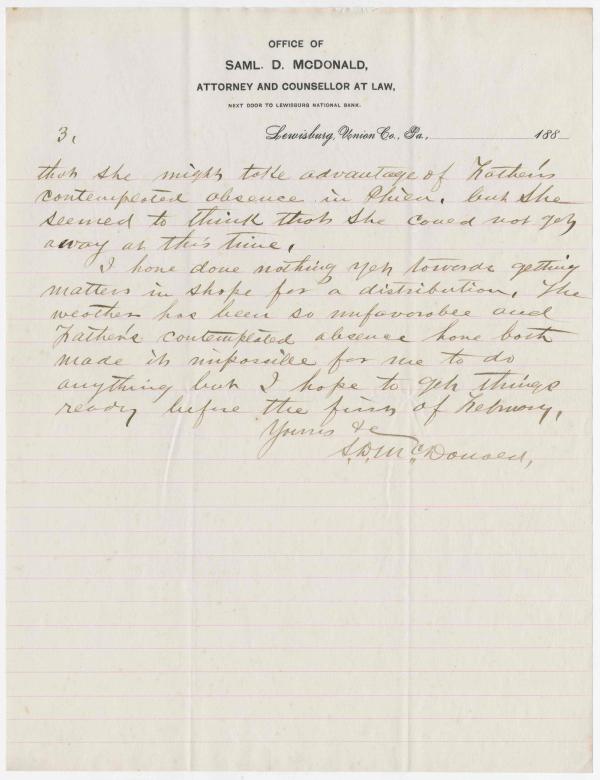 OFFICE OF
SAML. D. McDONALD,
ATTORNEY AND COUNSELLOR AT LAW,
NEXT DOOR TO LEWISBURG NATIONAL BANK.
3, Lewisburg, Union Co., Pa., 188
that she might take advantage of Father's
contemplated absence in Phila. but she
seemed to think that she could not get
away at this time.
I have done nothing yet towards getting
matters in shape for a distribution. The
weather has been so unfavorable and
Father's contemplated absence have both
made it impossible for me to do
anything but I hope to get things
ready before the first of February.
Yours &c
S. D. McDonald,